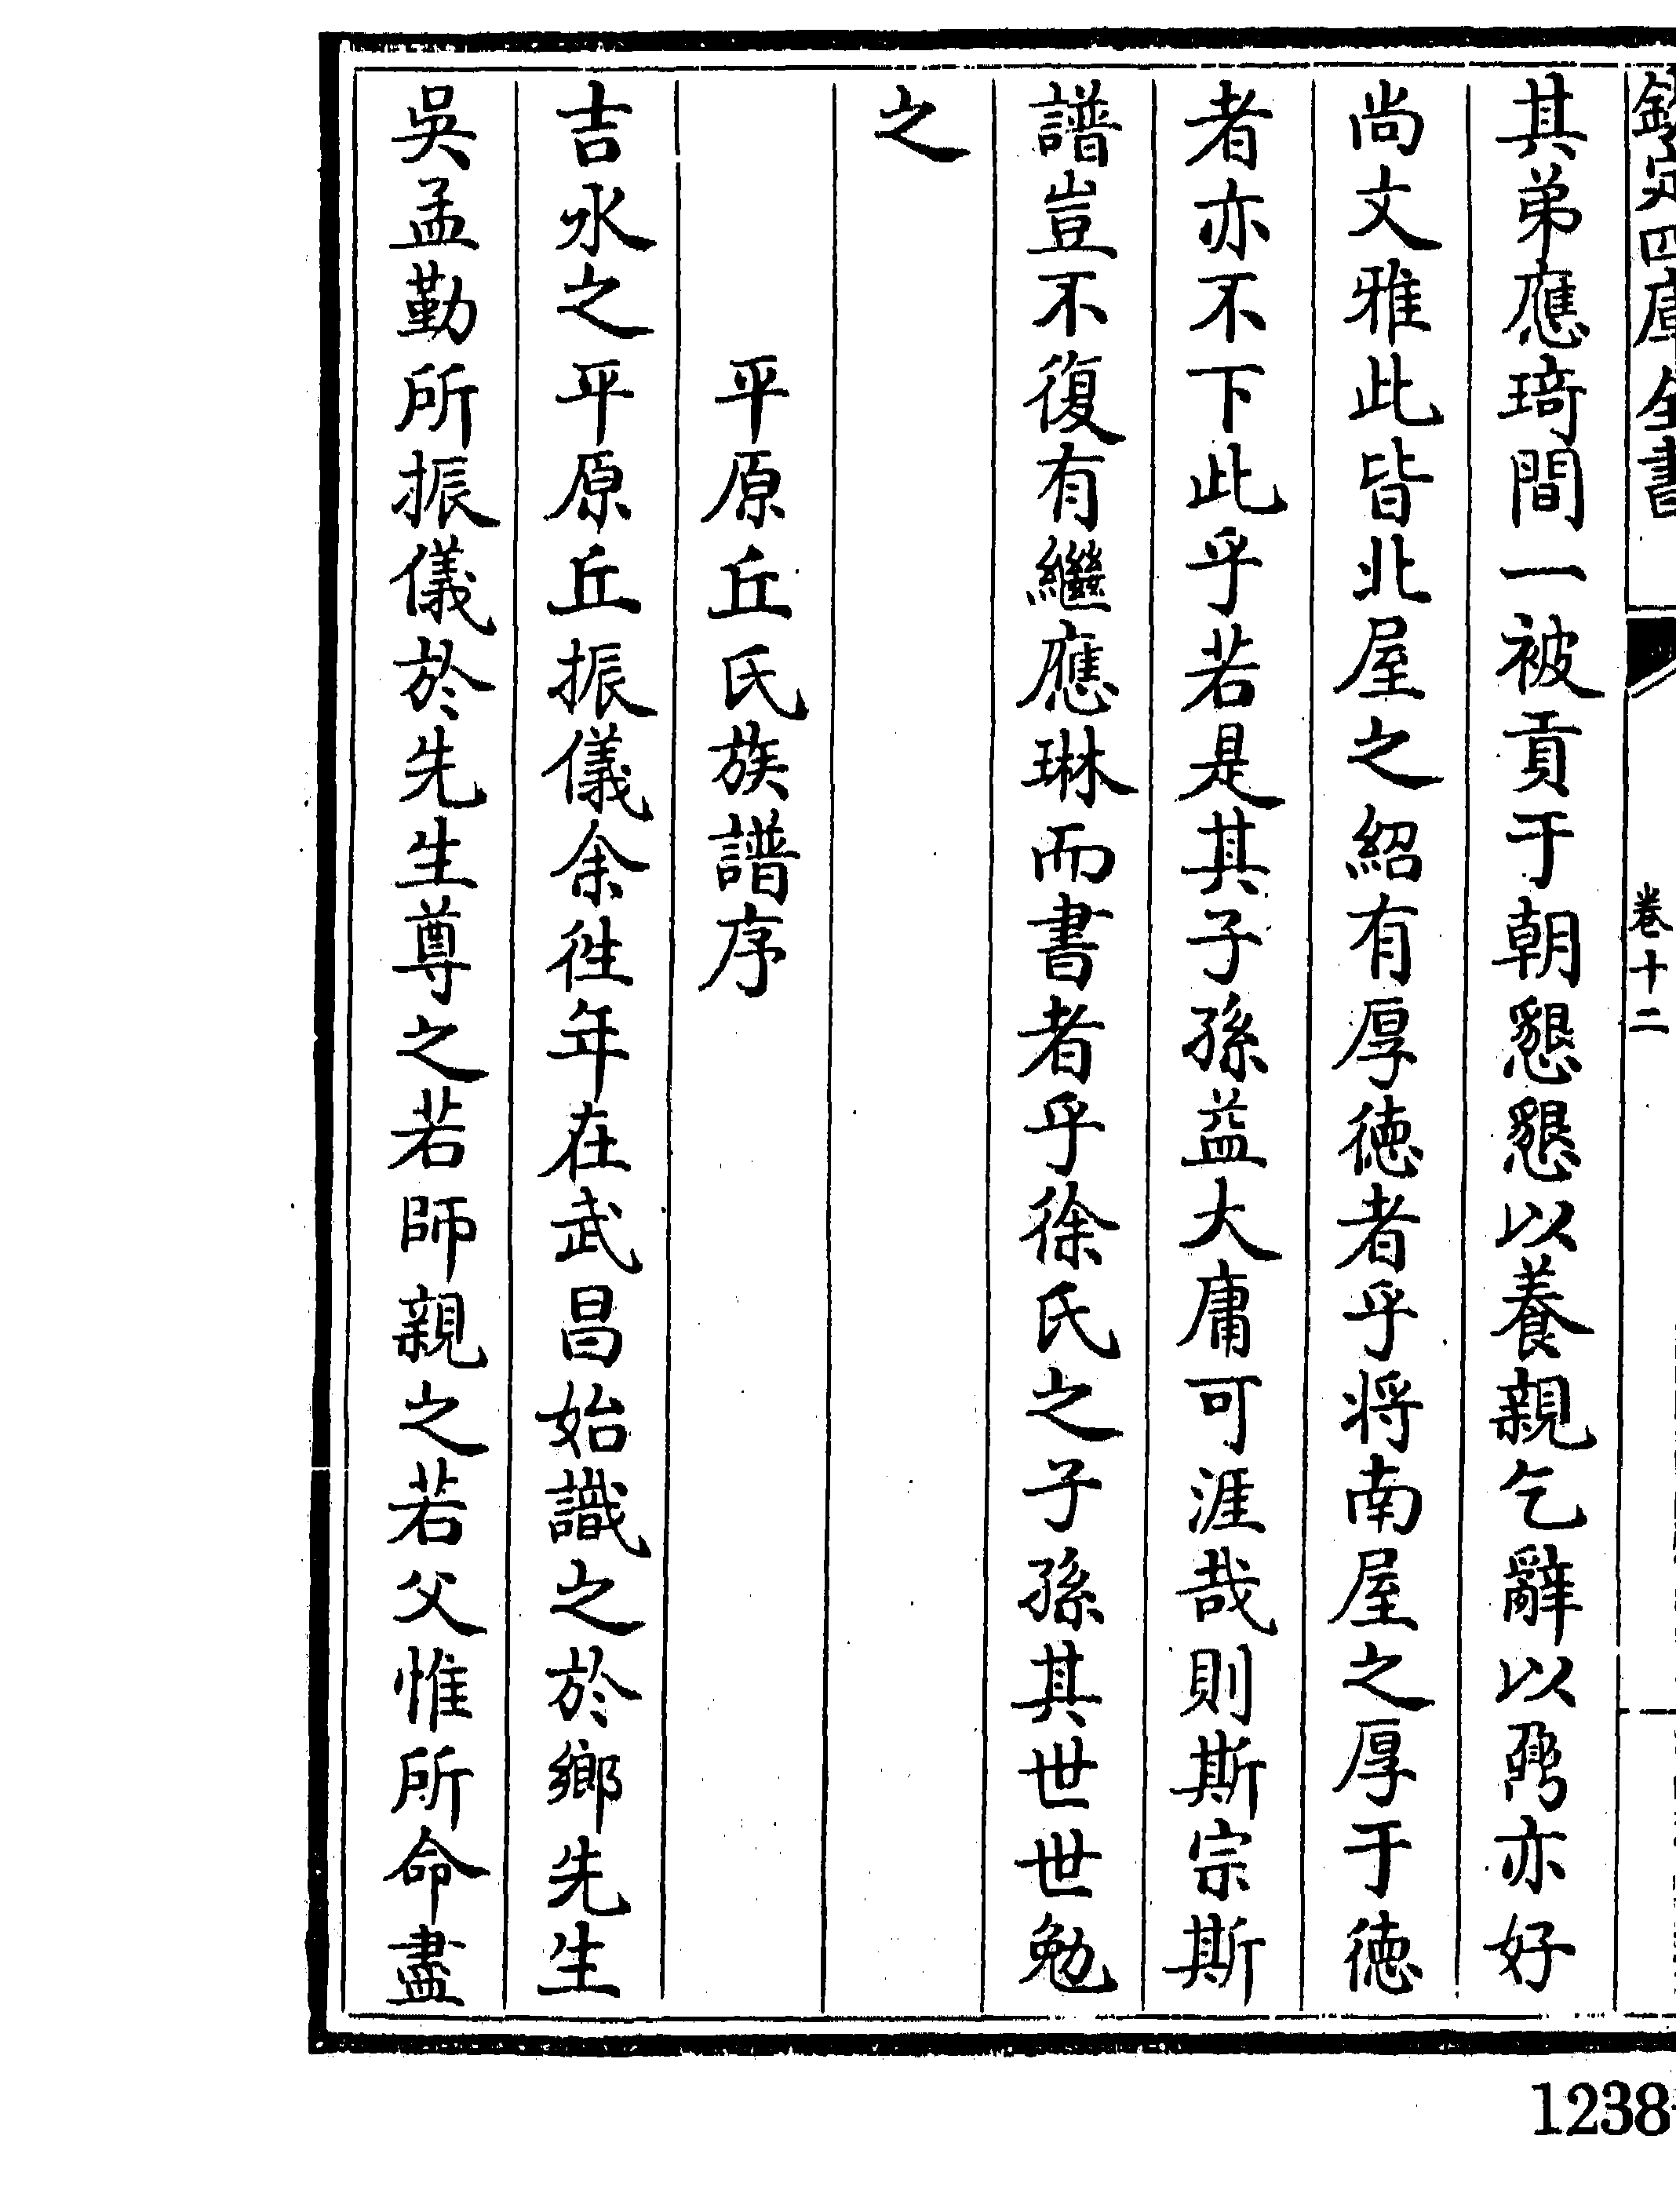 欽定四庫全書
卷十二
其弟應琦間一被貢于朝懇懇以養親乞辭以歸亦好
尚文雅此皆北屋之紹有厚德者乎将南屋之厚于德
者亦不下此乎若是其子孫益大庸可涯哉則斯宗斯
譜豈不復有繼應琳而書者乎徐氏之子孫其世世勉
之
平原丘氏族譜序
吉水之平原丘振儀余徃年在武昌始識之於鄉先生
吳孟勤所振儀於先生尊之若師親之若父惟所命盡
1238